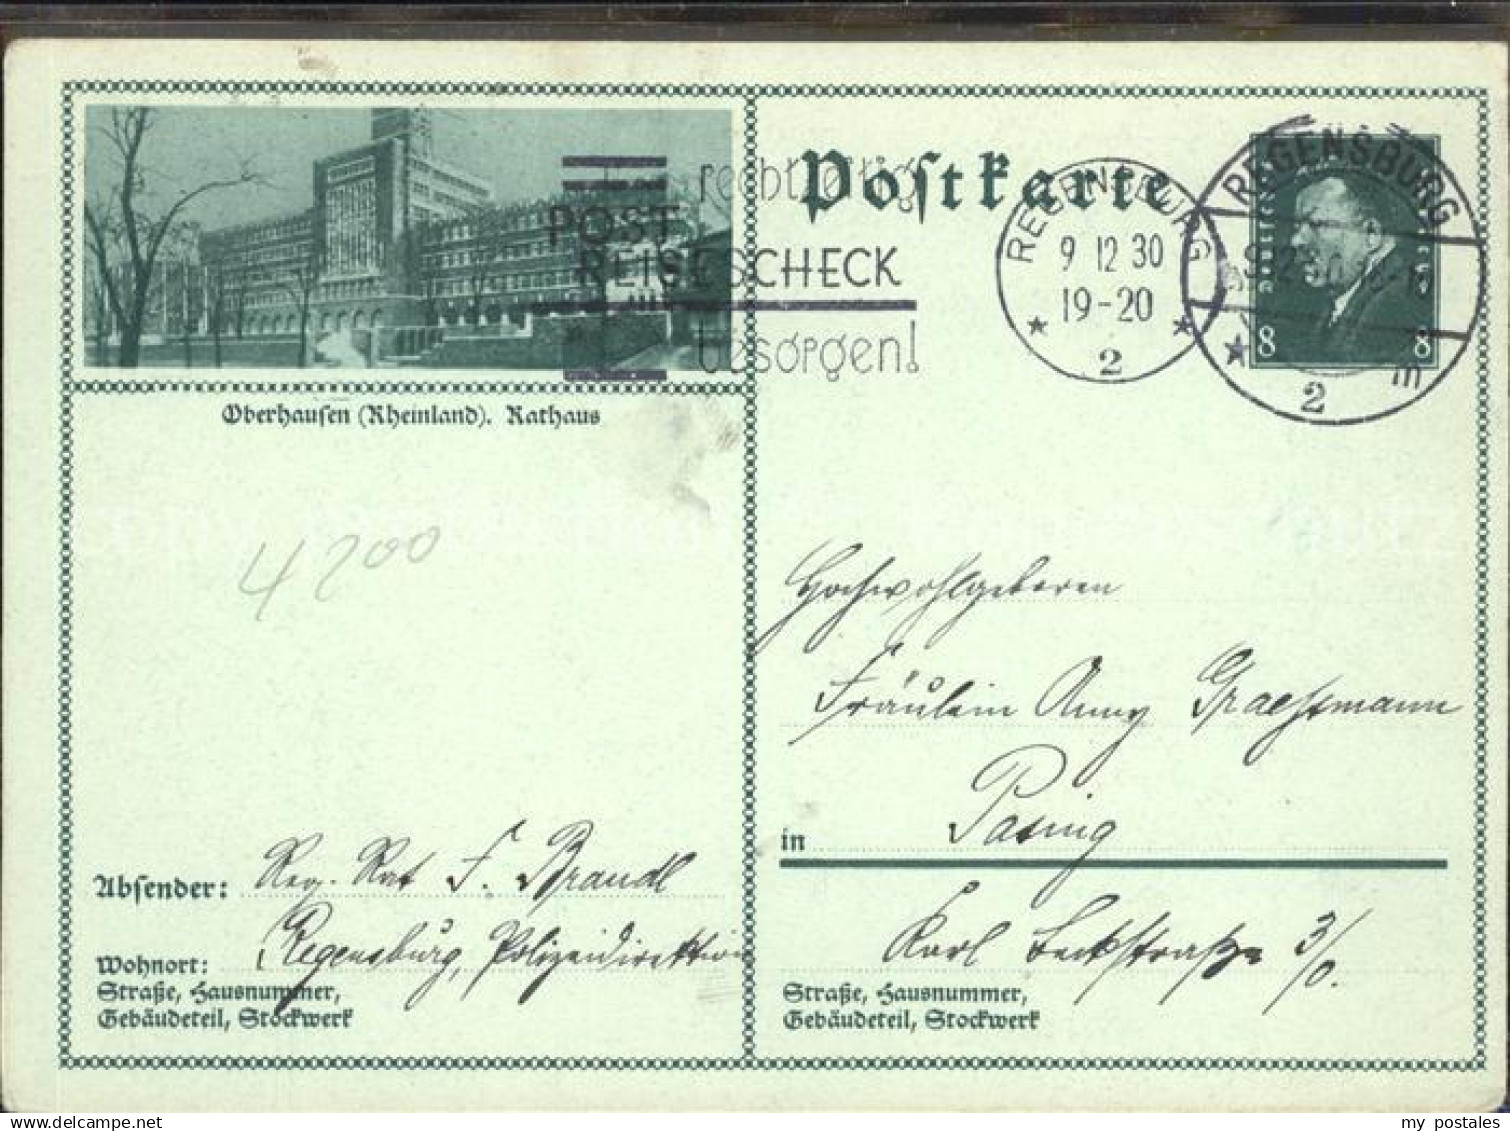 Postkarte
rechtzeitig
POST
REISESCHECK
besorgen!
REGENSBURG
9 12 30
19-20
2
REGENSBURG
2
m
8 8
Oberhausen (Rheinland). Rathaus
4200
Hochwohlgeboren
Fräulein Anny
Pasing
in
Absender: Reg. Rat F. Brandl
Wohnort: Regensburg, Polizeidirektion
Straße, Hausnummer,
Gebäudeteil, Stockwerk
Karl Beckstraße 3/0.
Straße, Hausnummer,
Gebäudeteil, Stockwerk
my postales